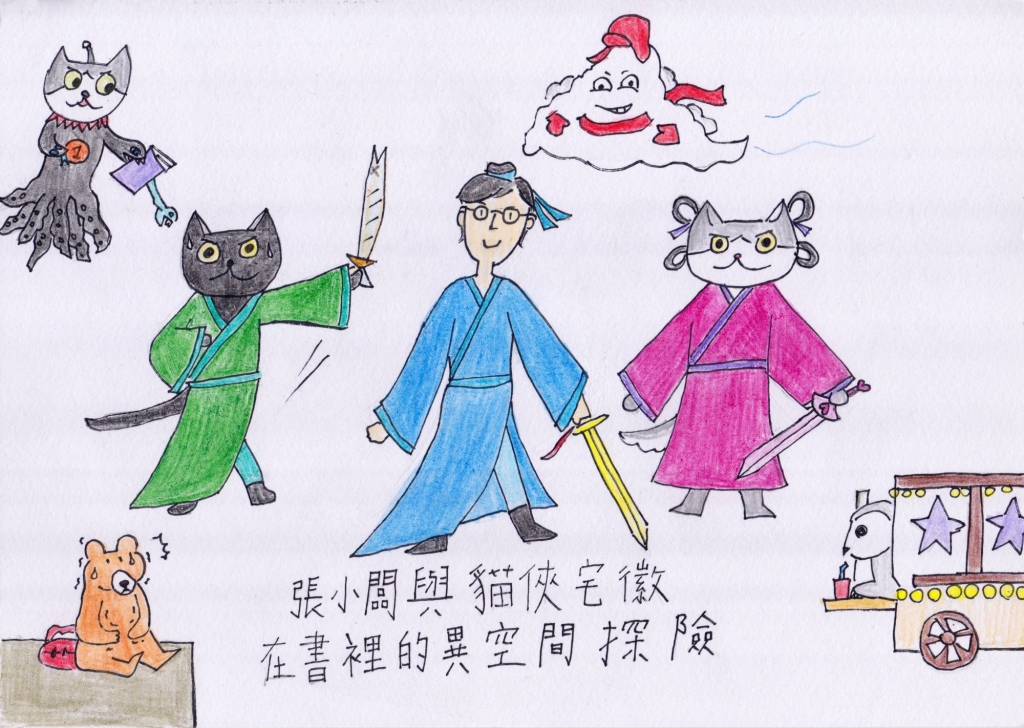 1
張小闆與貓俠宅徽
在書裡的異空間探險